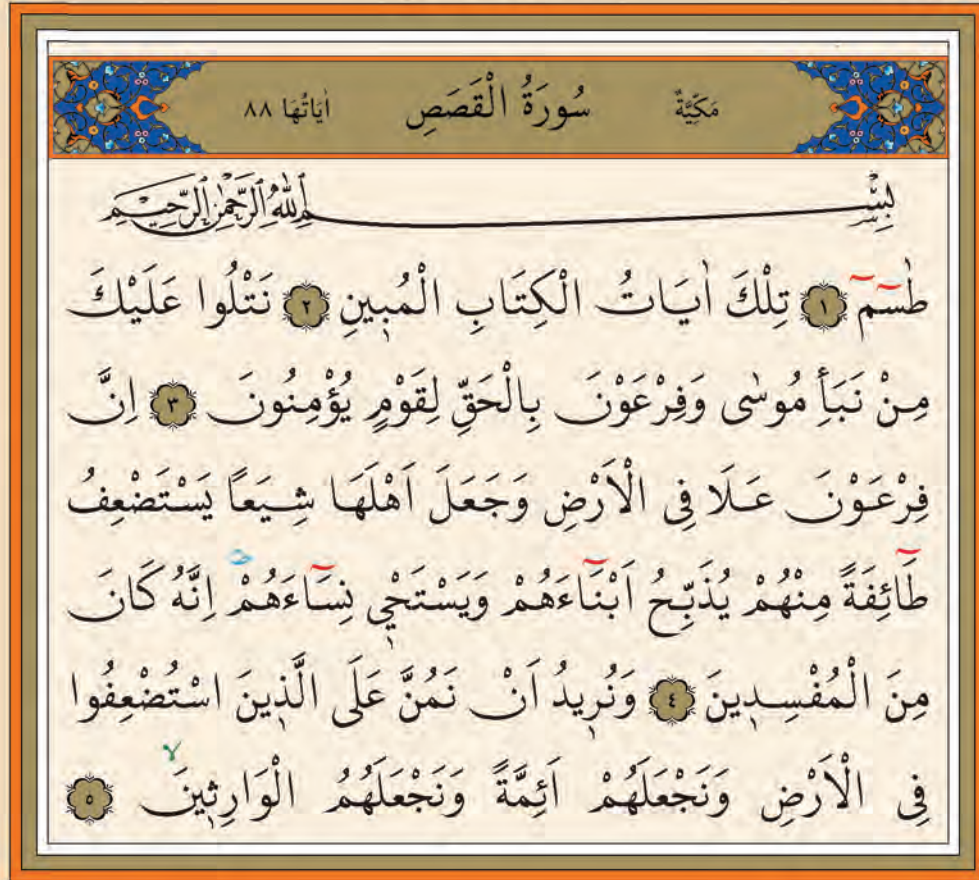 مَكِّيَّةٌ سُورَةُ الْقَصَصِ اٰيَاتُهَا ٨٨
بِسْمِ اللّٰهِ الرَّحْمٰنِ الرَّحِيمِ
طٰسٓمٓ ﴿١﴾ تِلْكَ اٰيَاتُ الْكِتَابِ الْمُبٖينِ ﴿٢﴾ نَتْلُوا عَلَيْكَ
مِنْ نَبَأِ مُوسٰى وَفِرْعَوْنَ بِالْحَقِّ لِقَوْمٍ يُؤْمِنُونَ ﴿٣﴾ اِنَّ
فِرْعَوْنَ عَلَا فِى الْاَرْضِ وَجَعَلَ اَهْلَهَا شِيَعًا يَسْتَضْعِفُ
طَٓائِفَةً مِنْهُمْ يُذَبِّحُ اَبْنَٓاءَهُمْ وَيَسْتَحْيٖ نِسَٓاءَهُمْ ۜ اِنَّهُ كَانَ
مِنَ الْمُفْسِدٖينَ ﴿٤﴾ وَنُرٖيدُ اَنْ نَمُنَّ عَلَى الَّذٖينَ اسْتُضْعِفُوا
فِى الْاَرْضِ وَنَجْعَلَهُمْ اَئِمَّةً وَنَجْعَلَهُمُ الْوَارِثٖينَ ۙ ﴿٥﴾